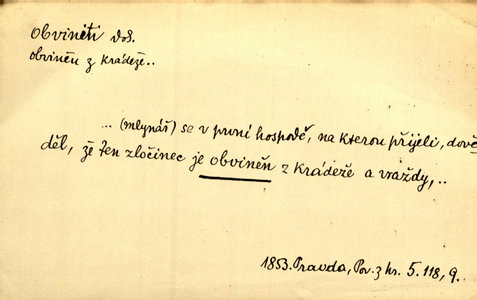 Obviněti dok.
obviněn z krádeže..
... (mlynář) se v první hospodě, na kterou přijeli, dově
děl, že ten zločinec je obviněn z krádeže a vraždy,..
1853. Pravda, Pov. z kr. 5. 118, 9.